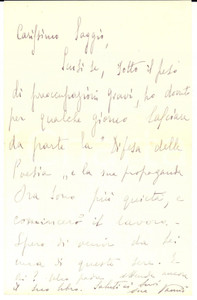 Carissimo Saggio,
Scusi se, sotto il peso
di preoccupazioni gravi, ho dovuto
per qualche giorno lasciar
da parte la "Difesa della
Poesia" e la sua propaganda
Ora sono più quieta, e
comincerò il lavoro.
Spero di venir da lei
una di queste sere.
il suo libro. Saluti ai suoi